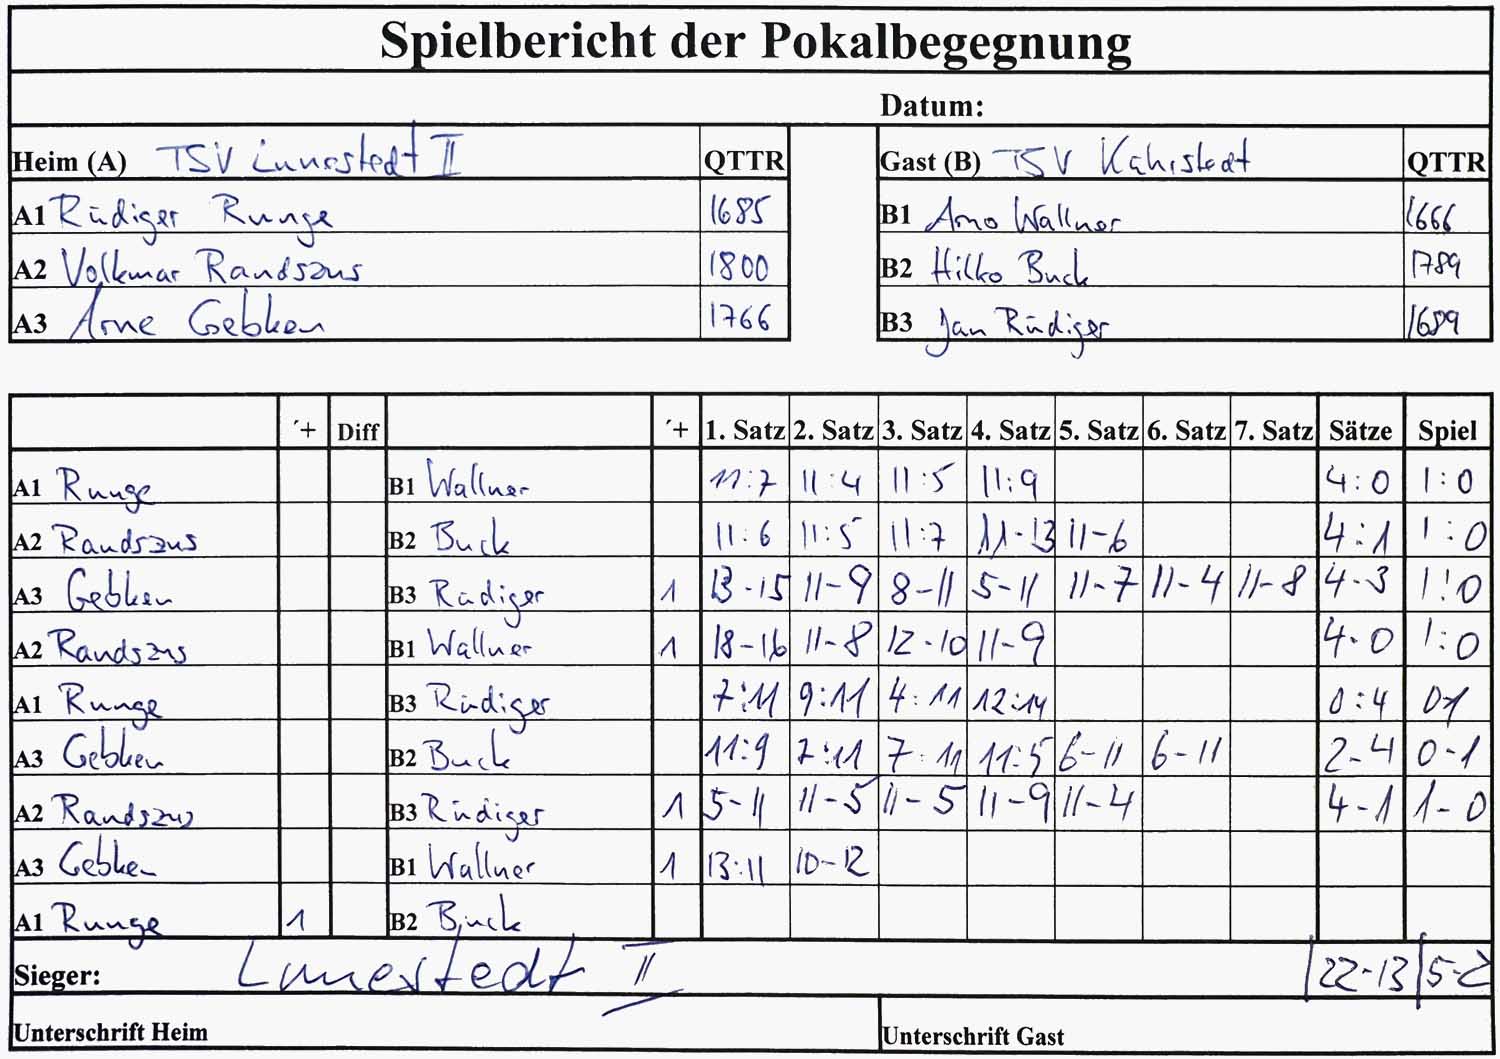 Spielbericht der Pokalbegegnung
Datum:
Heim (A) TSV Lunestedt II QTTR Gast (B) TSV Kührstedt QTTR
A1 Rüdiger Runge 1685 B1 Arno Wallner 1666
A2 Volkmar Randszus 1800 B2 Hilko Buck 1789
A3 Arne Gebken 1766 B3 Jan Rüdiger 1689
´+ Diff ´+ 1. Satz 2. Satz 3. Satz 4. Satz 5. Satz 6. Satz 7. Satz Sätze Spiel
A1 Runge B1 Wallner 11:7 11:4 11:5 11:9 4:0 1:0
A2 Randszus B2 Buck 11:6 11:5 11:7 11-13 11-6 4:1 1:0
A3 Gebken B3 Rüdiger 1 13-15 11-9 8-11 5-11 11-7 11-4 11-8 4-3 1:0
A2 Randszus B1 Wallner 1 18-16 11-8 12-10 11-9 4-0 1:0
A1 Runge B3 Rüdiger 7:11 9:11 4:11 12:14 0:4 0-1
A3 Gebken B2 Buck 11:9 7:11 7:11 11:5 6-11 6-11 2-4 0-1
A2 Randszus B3 Rüdiger 1 5-11 11-5 11-5 11-9 11-4 4-1 1-0
A3 Gebken B1 Wallner 1 13:11 10-12
A1 Runge 1 B2 Buck
Sieger: Lunestedt II 22-13 5-2
Unterschrift Heim Unterschrift Gast